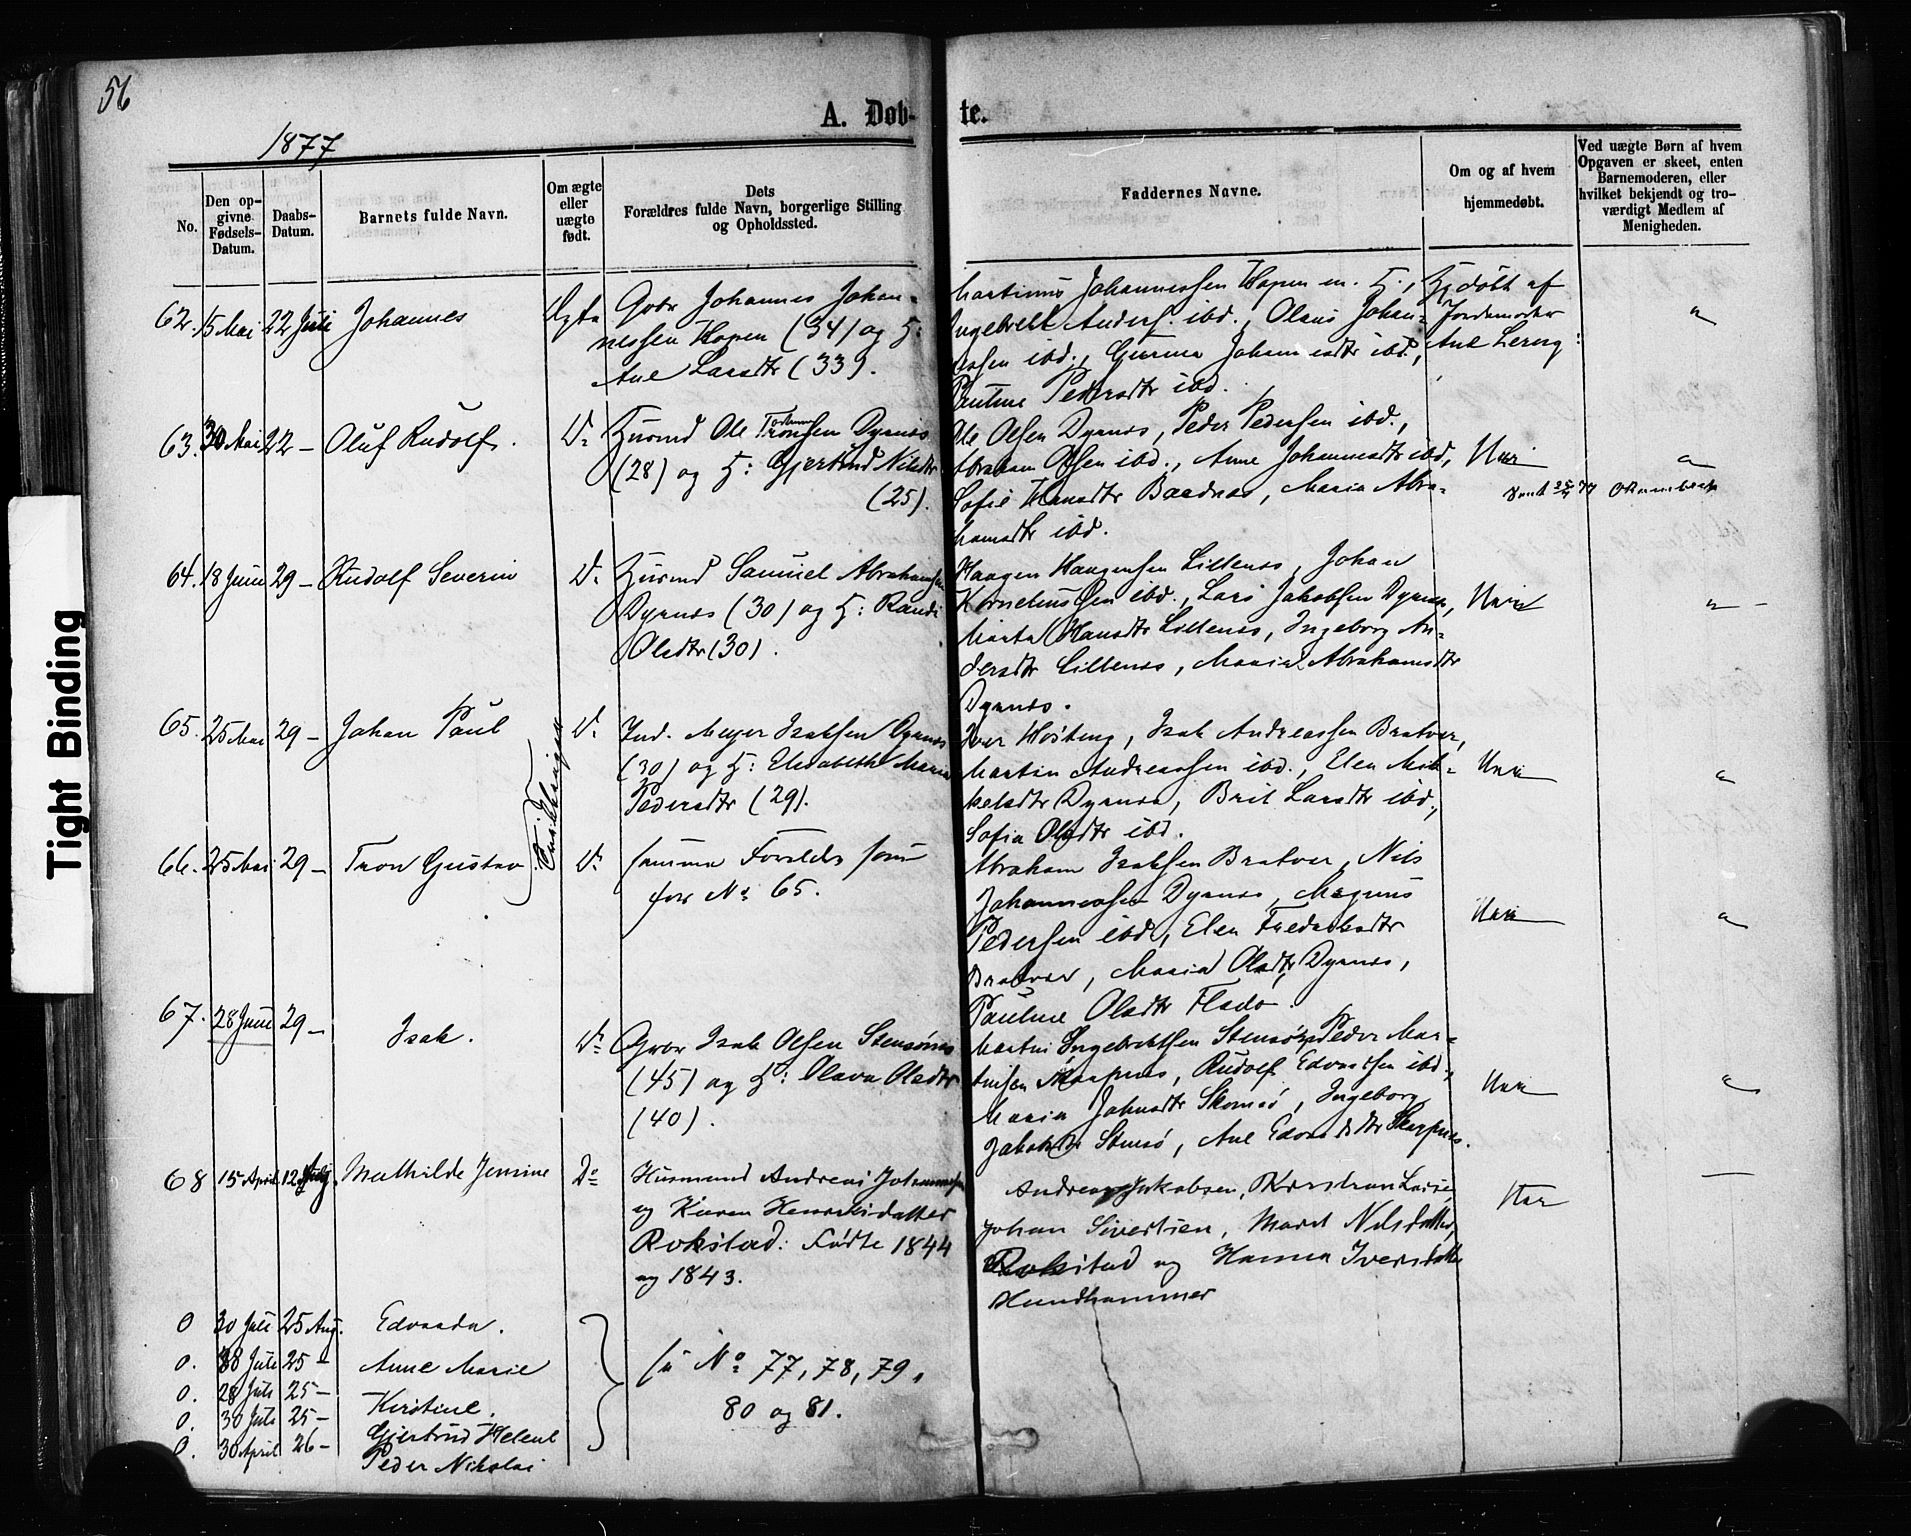 56
A. Døb- te.
1877
No.
Den op-
givne
Fødsels-
Datum.
Daabs-
Datum.
Barnets fulde Navn.
Om ægte
eller
uægte
født.
Dets
Forældres fulde Navn, borgerlige Stilling
og Opholdssted.
Faddernes Navne.
Om og af hvem
hjemmedøbt.
Ved uægte Børn af hvem
Opgaven er skeet, enten
Barnemoderen, eller
hvilket bekjendt og tro-
værdigt Medlem af
Menigheden.
62. 15 Mai 22 Juli Johannes Ægte
Gbr Johannes Johan-
nessen Hopen (34) og H:
Ane Larsdtr (33).
Martinus Johannessen Hopen m. H.,
Ingebrikt Anders. ibd., Olaus Johan-
essen ibd., Gurina Johannesdtr ibd.,
Pauline Pedersdtr ibd.
Hjdøbt af
Jordemoder
Ane Lervg:
63. 30 Mai 22 - Oluf Rudolf. Do
Husmd Ole Tronsen Dyrnes
(28) og H: Gjertrud Nilsdtr
(25).
Ole Olsen Dyrnes, Peder Pedersen ibd.,
Abraham Olsen ibd., Anne Johannesdtr ibd,
Sofie Hansdtr Baadnes, Maria Abra-
hamsdtr ibd.
64. 18 Juni 29 - Rudolf Severin Do
Husmd Samuel Abrahamsen
Dyrnes (30) og H: Randi
Olsdtr (30).
Haagen Haagensen Lillenes, Johan
Kornelius Olsen ibd., Lars Jakobsen Dyrnes,
Marta Hansdtr Lillenes, Ingeborg An-
dersdtr Lillenes, Maria Abrahamsdtr
Dyrnes.
65. 25 Mai 29 - Johan Paul Do
Ind. Meyer Isaksen Dyrnes
(30) og H: Elisabeth Maria
Pedersdtr (29).
Iver Høsteng, Isak Andreassen Bratvær,
Martin Andreassen ibd., Elen Mik-
kelsdtr Dyrnes, Brit Larsdtr ibd,
Sofia Olsdtr ibd.
66. 25 Mai 29 - Tron Gustav Do
samme Forældre som
for No 65.
Abraham Isaksen Bratvær, Nils
Johannessen Dyrnes, Magnus
Pedersen ibd, Elen Fredriksdtr
Bratvær, Maria Olsdtr Dyrnes,
Pauline Olsdtr Flado.
67. 28 Juni 29 - Isak. Do
Gbr Isak Olsen Stensønes
(45) og H: Olava Olsdtr
(40).
Martin Ingebrektsen Stensø, Peder Mar-
tinsen Skarpnes, Rudolf Edvardsen ibd.,
Maria Johnsdtr Skomsø, Ingeborg
Jakobsdtr Stensø, Ane Edvardsdtr Skarpnes.
68 15 April 12 Aug. Mathilde Jensine Do
Husmand Andreas Johannesen
og Karen Henriksdatter
Rokstad: Fødte 1844
og 1843.
Andreas Jakobsen,
Johan Sivertsen, Maret Nilsdatter,
Rokstad og Hanna Iversdatter
Hundhammer
0 30 Juli 25 Aug. Edvarda.
0. 28 Juli 25 - Anne Marie
0. 28 Juli 25 - Kirstine.
0. 30 Juli 25 - Gjertrud Helene
0. 30 April 26 - Peder Nikolai
se No 77, 78, 79,
80 og 81.
Tight Binding